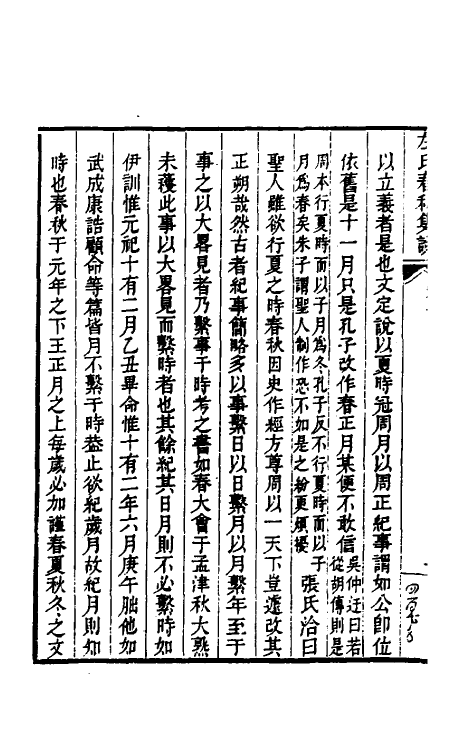 左氏春秋集說
以立義者是也文定說以夏時冠周月以周正紀事謂如公卽位
依舊是十一月只是孔子改作春正月某便不敢信
吳仲迂曰若
從胡傳則是
周本行夏時而以子月爲冬孔子反不行夏時而以子
月爲春矣朱子謂聖人制作恐不如是之紛更煩擾
張氏洽曰
聖人雖欲行夏之時春秋因史作經方尊周以一天下豈遽改其
正朔哉然古者紀事簡略多以事繫日以日繫月以月繫年至于
事之以大畧見者乃繫事于時考之書如春大會于孟津秋大熟
未穫此事以大畧見而繫時者也其餘紀其日月則不必繫時如
伊訓惟元祀十有二月乙丑畢命惟十有二年六月庚午朏他如
武成康誥顧命等篇皆月不繫于時葢止欲紀歲月故紀月則知
時也春秋于元年之下王正月之上每歲必加謹春夏秋冬之文